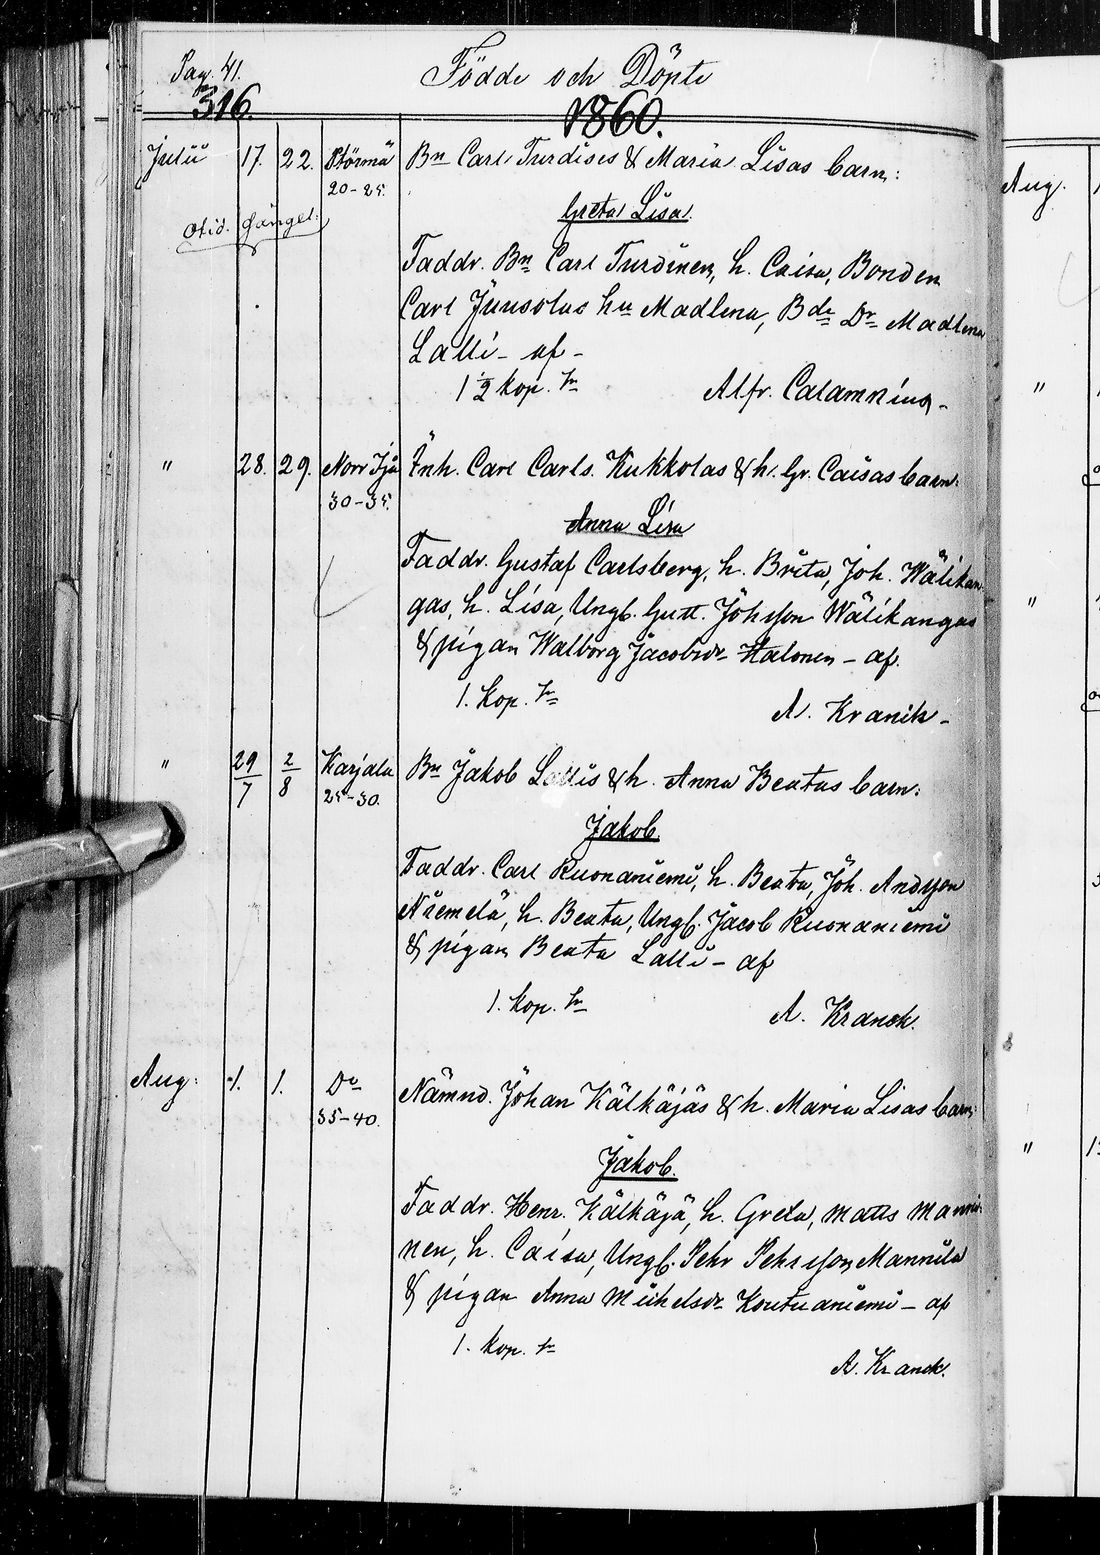 Pag. 41.
316.
Födde och Döpte
1860.
Julii 17. 22. Störmä Bn Carl Turdises & Maria Lisas barn:
20-25.
Greta Lisa.
otid. gänget:
Faddr. Bn Carl Turdinen, h. Caisa, Bonden
Carl Junsolas hu Madlena, Bde Dr Madlena
Lalli - af -
1 1/2 kop. Sr Alfr. Calamnius -
" 28. 29. Norr Ijå Inh. Carl Carls. Kukkolas & h. Gr. Caisas barn:
30-35.
Anna Lisa
Faddr. Gustaf Carlsberg, h. Brita, Joh. Wälikan-
gas, h. Lisa, Ungk. Gust. Johsson Wälikangas
& pigan Walborg Jacobsdr Halonen - af.
1. kop. Sr
A. Kranck -
" 29/7 2/8 Karjala Bn Jakob Lallis & h. Anna Beatas barn:
25-30.
Jakob.
Faddr. Carl Kuonaniemi, h. Beata, Joh. Andsson
Niemelä, h. Beata, Ungk. Jacob Kuonaniemi
& pigan Beata Lalli - af
1. kop. Sr
A. Kranck.
Aug: 1. 1. Do Nämnd. Johan Kälkäjäs & h. Maria Lisas barn:
35-40.
Jakob.
Faddr. Henr. Kälkäjä, h. Greta, Matts Manni-
nen, h. Caisa, Ungk. Pehr Pehrsson Mannila
& pigan Anna Michelsdr Koutuaniemi - af
1. kop. Sr
A. Kranck.
Aug.
"
"
"